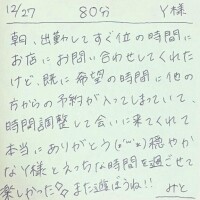 12/27 80分 Y様
朝、出勤してすぐ位の時間に
お店にお問い合わせしてくれた
けど、既に希望の時間に他の
方からの予約が入ってしまっていて、
時間調整して会いに来てくれて
本当にありがとう(o^^o)穏やか
なY様とえっちな時間を過ごせて
楽しかった♡また遊ぼうね!!
みと